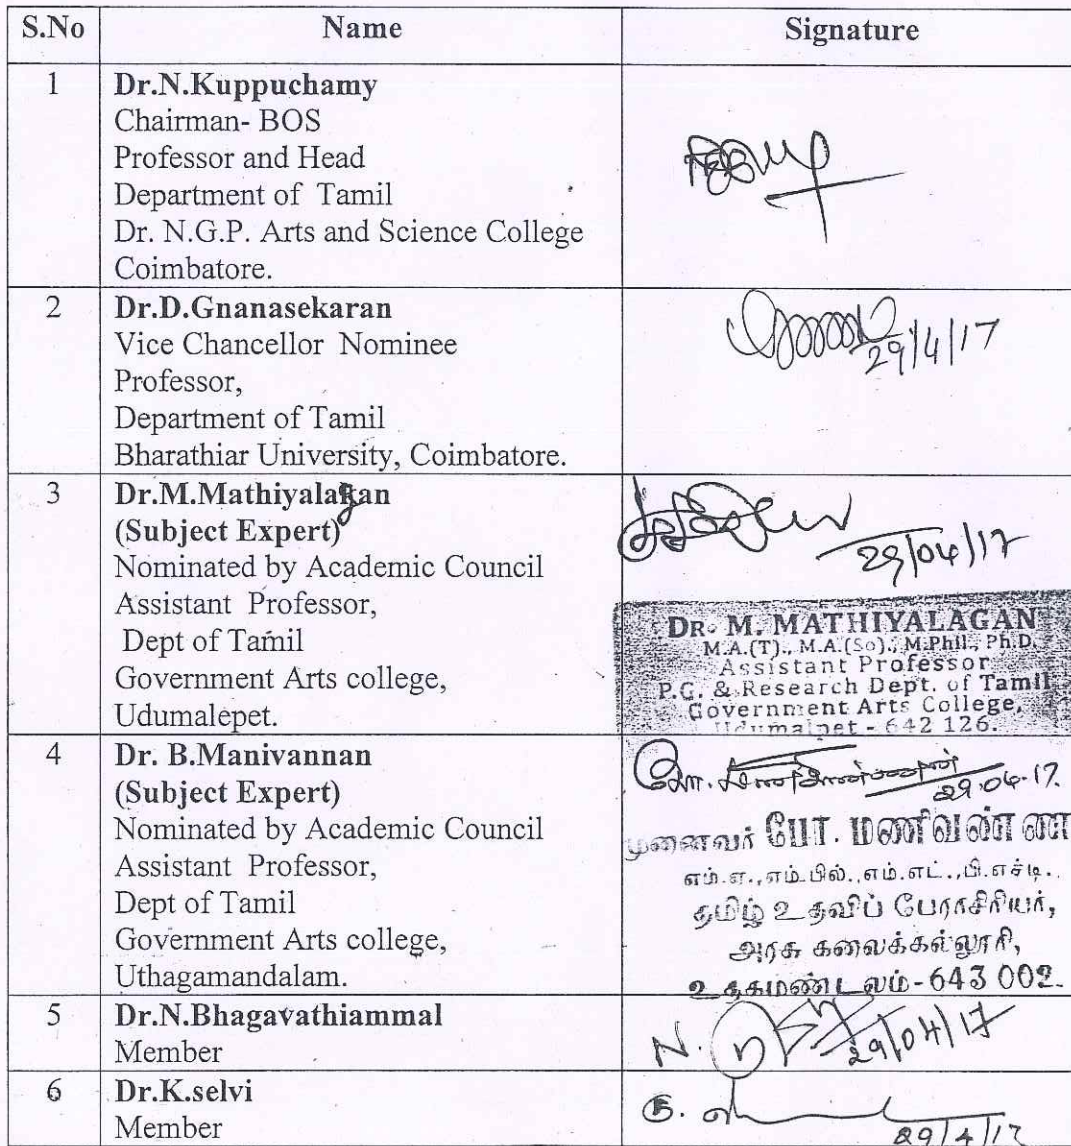 S.No Name Signature
1 Dr.N.Kuppuchamy
Chairman- BOS
Professor and Head
Department of Tamil
Dr. N.G.P. Arts and Science College
Coimbatore.
2 Dr.D.Gnanasekaran
Vice Chancellor Nominee
Professor,
Department of Tamil
Bharathiar University, Coimbatore.
29/4/17
3 Dr.M.Mathiyalagan
(Subject Expert)
Nominated by Academic Council
Assistant Professor,
Dept of Tamil
Government Arts college,
Udumalepet.
29/04/17
DR. M. MATHIYALAGAN
M.A.(T)., M.A.(So)., M.Phil., Ph.D.
Assistant Professor
P.G. & Research Dept. of Tamil
Government Arts College,
Udumalpet - 642 126.
4 Dr. B.Manivannan
(Subject Expert)
Nominated by Academic Council
Assistant Professor,
Dept of Tamil
Government Arts college,
Uthagamandalam.
போ. மணிவண்ணன்
29.04.17.
முனைவர் போ. மணிவண்ண
எம்.ஏ.,எம்.பில்.,எம்.எட்.,பி.எச்டி.,
தமிழ் உதவிப் பேராசிரியர்,
அரசு கலைக்கல்லூரி,
உதகமண்டலம்-643 002.
5 Dr.N.Bhagavathiammal
Member
N.
29/04/17
6 Dr.K.selvi
Member
க.
29/4/17